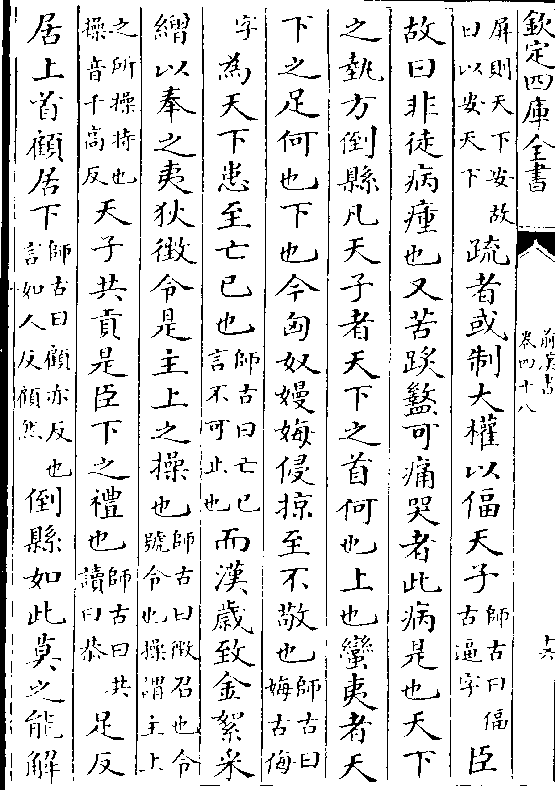 欽定四庫全書
前漢書
卷四十八
十六
屏則天下安故
曰以安天下
疏者或制大權以偪天子
師古曰偪
古逼字
臣
故曰非徒病瘇也又苦𨂂盭可痛哭者此病是也天下
之埶方倒縣凡天子者天下之首何也上也蠻夷者天
下之足何也下也今匈奴嫚娒侵掠至不敬也
師古曰
娒古侮
字
為天下患至亡已也
師古曰亡已
言不可止也
而漢歲致金絮采
繒以奉之夷狄徵令是主上之操也
師古曰徵召也令
號令也操謂主上
之所操持也
操音千高反
天子共貢是臣下之禮也
師古曰共
讀曰恭
足反
居上首顧居下
師古曰顧亦反也
言如人反顧然
倒縣如此莫之能解